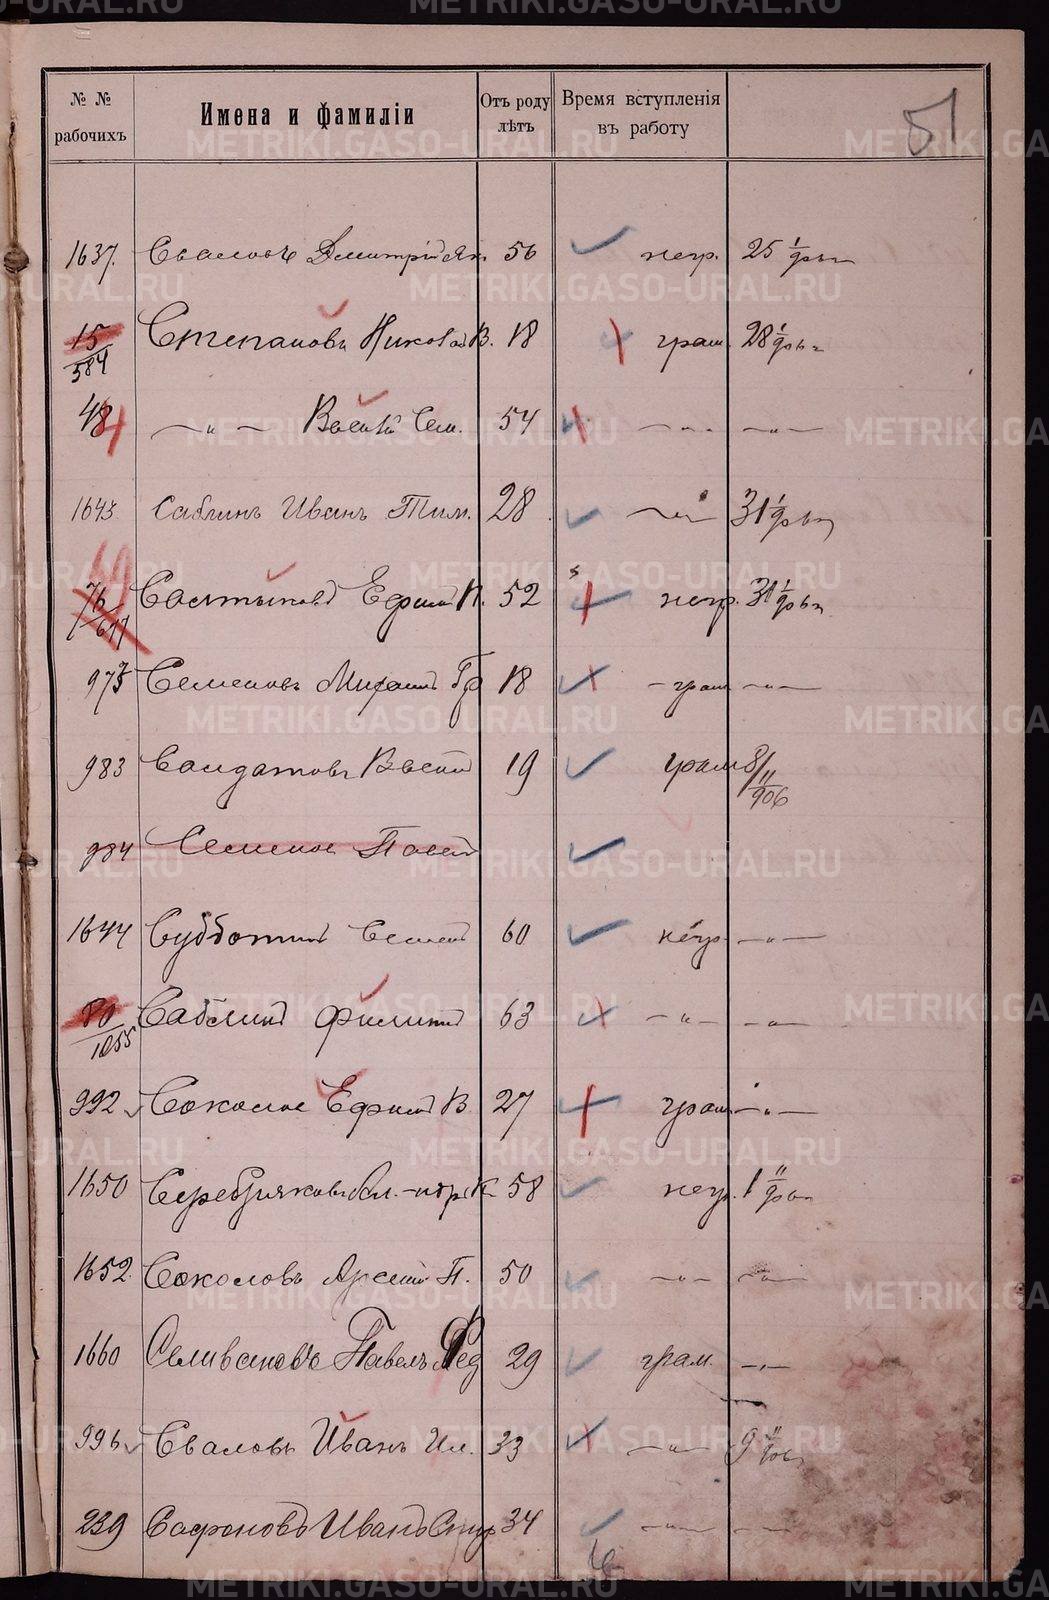 № № рабочихъ Имена и фамиліи Отъ роду лѣтъ Время вступленія въ работу 51
1637. Сваловъ Дмитрій Як. 56 негр. 25 1/906 г.
15/584 Степановъ Николай В. 18 грам. 28 1/906 г.
48 —„— Васил. Сем. 54 —„— —„—
1643 Саблинъ Иванъ Тим. 28 —„— 31 1/906 г.
76/617 Салтыковъ Ефим П. 52 негр. 31 1/906 г.
973 Семеновъ Михаилъ Гр 18 грам —„—
983 Солдатовъ Васил 19 грам 8/II 906
984 Семенов Павел
1644 Субботинъ Семен 60 негр —„—
80/1055 Саблинъ Филиппъ 63 —„— —„—
992 Соколов Ефимъ В 27 грам —„—
1650 Серебряковъ Ал.-ндръ К 58 негр. 1 II/906 г.
1652 Соколовъ Арсений П. 50 —„— —„—
1660 Селивановъ Павелъ Фед 29 грам. —„—
996 Сваловъ Иванъ Ил. 33 —„— 9 II/906 г.
239 Сафоновъ Иванъ Спир 34 —„— —„—
METRIKI.GASO-URAL.RU